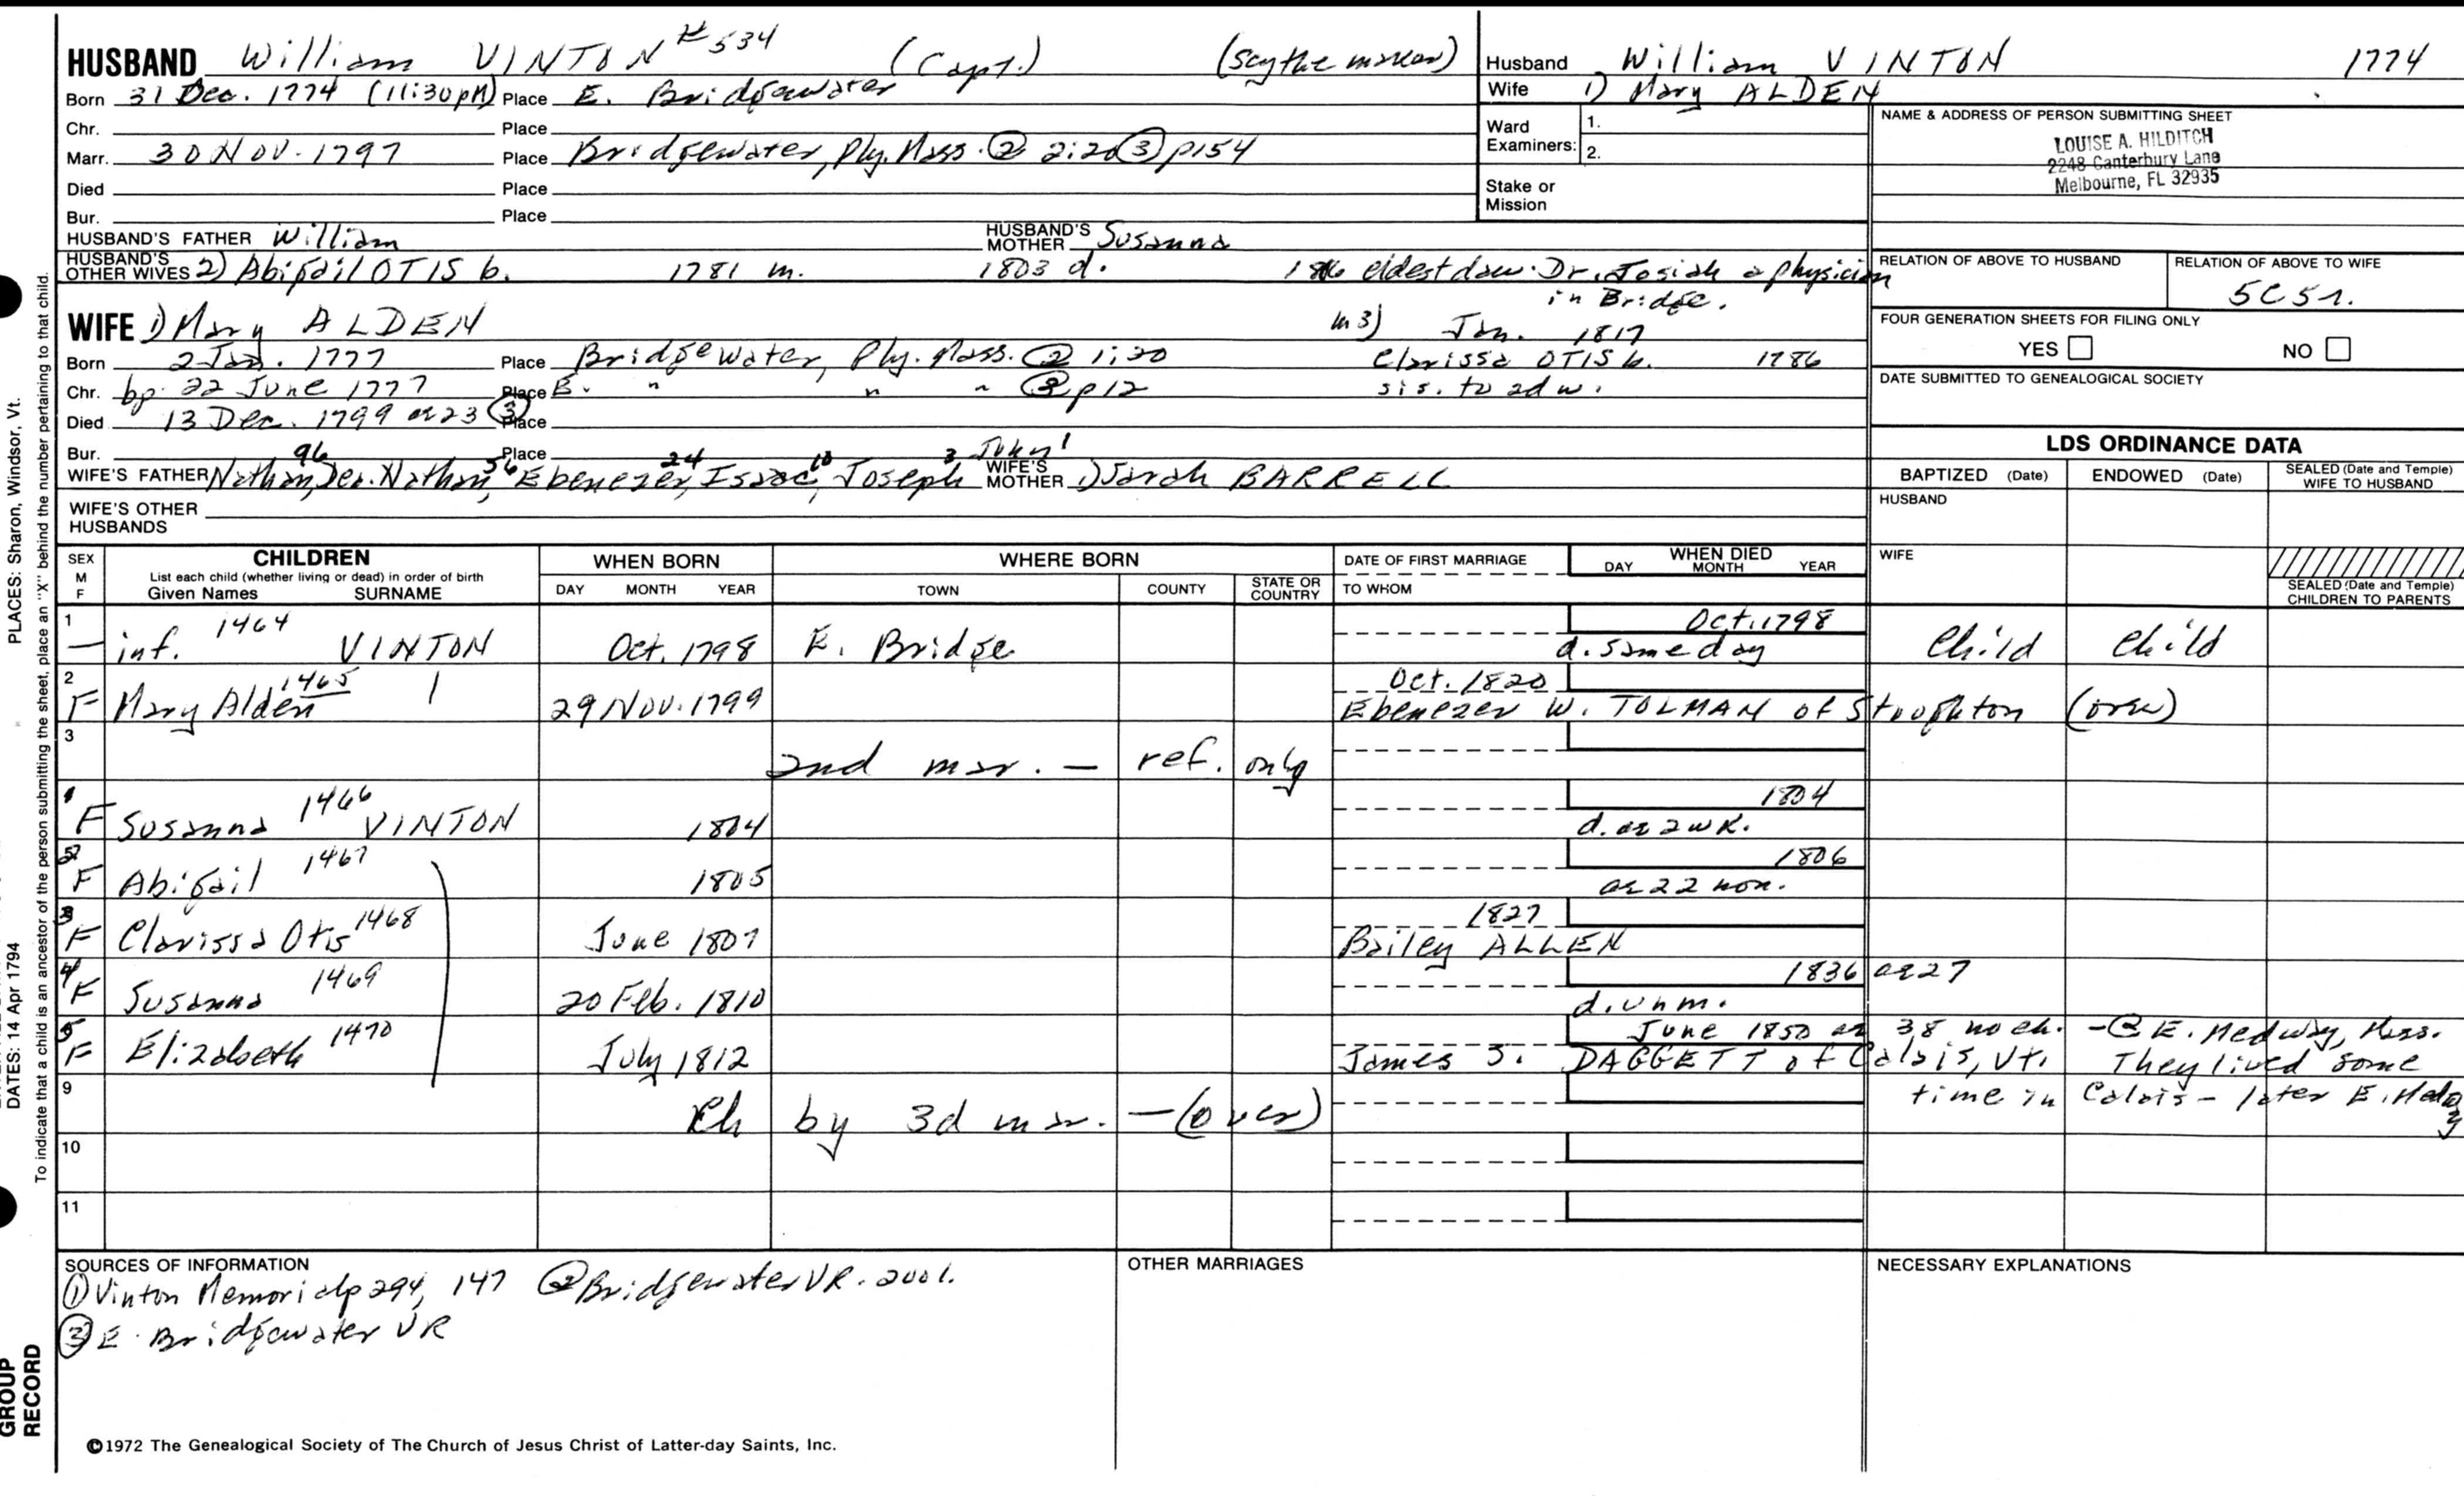 HUSBAND William VINTON #534 (Capt.) (scythe maker)
Born 31 Dec. 1774 (11:30pM) Place E. Bridgewater
Chr. Place
Marr. 30 Nov. 1797 Place Bridgewater, Ply. Mass. ② 2:20 ③ p154
Died Place
Bur. Place
HUSBAND'S FATHER William HUSBAND'S MOTHER Susanna
HUSBAND'S OTHER WIVES 2) Abigail OTIS b. 1781 m. 1803 d. eldest daw. Dr. Josiah a physician
in Bridge.
Husband William VINTON 1774
Wife 1) Mary ALDEN
Ward Examiners: 1.
2.
Stake or Mission
NAME & ADDRESS OF PERSON SUBMITTING SHEET
LOUISE A. HILDITCH
2248 Canterbury Lane
Melbourne, FL 32935
RELATION OF ABOVE TO HUSBAND RELATION OF ABOVE TO WIFE
5C5r.
FOUR GENERATION SHEETS FOR FILING ONLY
YES NO
DATE SUBMITTED TO GENEALOGICAL SOCIETY
WIFE 1) Mary ALDEN m 3) Jan. 1817
Born 2 Jan. 1777 Place Bridgewater, Ply. Mass. ② 1:30 Clarissa OTIS b. 1786
Chr. bp. 22 June 1777 Place E. " " p12 sis. to 2d w.
Died 13 Dec. 1799 ae 23 ③ Place
Bur. Place
WIFE'S FATHER Nathan, 96 Dea. Nathan, 56 Ebenezer, 24 Isaac, 10 Joseph 3 John 1 WIFE'S MOTHER 1) Sarah BARRELL
WIFE'S OTHER HUSBANDS
LDS ORDINANCE DATA
BAPTIZED (Date) ENDOWED (Date) SEALED (Date and Temple) WIFE TO HUSBAND
HUSBAND
WIFE
SEALED (Date and Temple) CHILDREN TO PARENTS
SEX M F CHILDREN List each child (whether living or dead) in order of birth Given Names SURNAME
WHEN BORN DAY MONTH YEAR
WHERE BORN TOWN COUNTY STATE OR COUNTRY
DATE OF FIRST MARRIAGE TO WHOM
WHEN DIED DAY MONTH YEAR
1 — inf. 1464 VINTON Oct. 1798 E. Bridge Oct. 1798
d. same day Child Child
2 F Mary Alden 1465 29 Nov. 1799 Oct. 1820
Ebenezer W. TOLMAN of Stoughton (over)
3 2nd mar. — ref. only
1 F Susanna 1466 VINTON 1804 1804
d. ae 2 wk.
2 F Abigail 1467 1805 1806
ae 22 mon.
3 F Clarissa Otis 1468 June 1807 1827
Bailey ALLEN
4 F Susanna 1469 20 Feb. 1810 1836 ae 27
d. unm.
5 F Elizabeth 1470 July 1812 June 1850 ae 38 no ch. - @ E. Medway, Mass.
James S. DAGGETT of Calais, Vt. They lived some
time in Calais - later E. Medway
9 Ch by 3d mar. — (over)
10
11
SOURCES OF INFORMATION
① Vinton Memorial p 294, 147 ② Bridgewater VR. 2 vol.
③ E. Bridgewater VR
OTHER MARRIAGES
NECESSARY EXPLANATIONS
©1972 The Genealogical Society of The Church of Jesus Christ of Latter-day Saints, Inc.
PLACES: Sharon, Windsor, Vt.
DATES: 14 Apr 1794
To indicate that a child is an ancestor of the person submitting the sheet, place an "X" behind the number pertaining to that child.
GROUP
RECORD